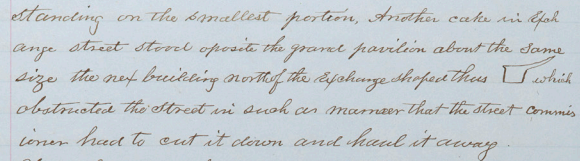 standing on the smallest portion. Another cake in Exch
ange street stood oposite the grand pavilion about the same
size the nex building north of the Exchange shaped thus which
obstructed the Street in such as manner that the street commis
ioner had to cut it down and haul it away.